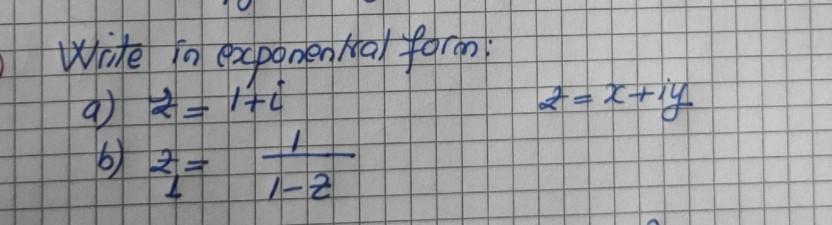 Write in exponential form:
a) z = 1+i z = x+iy
b) z₁ = 1/(1-z)